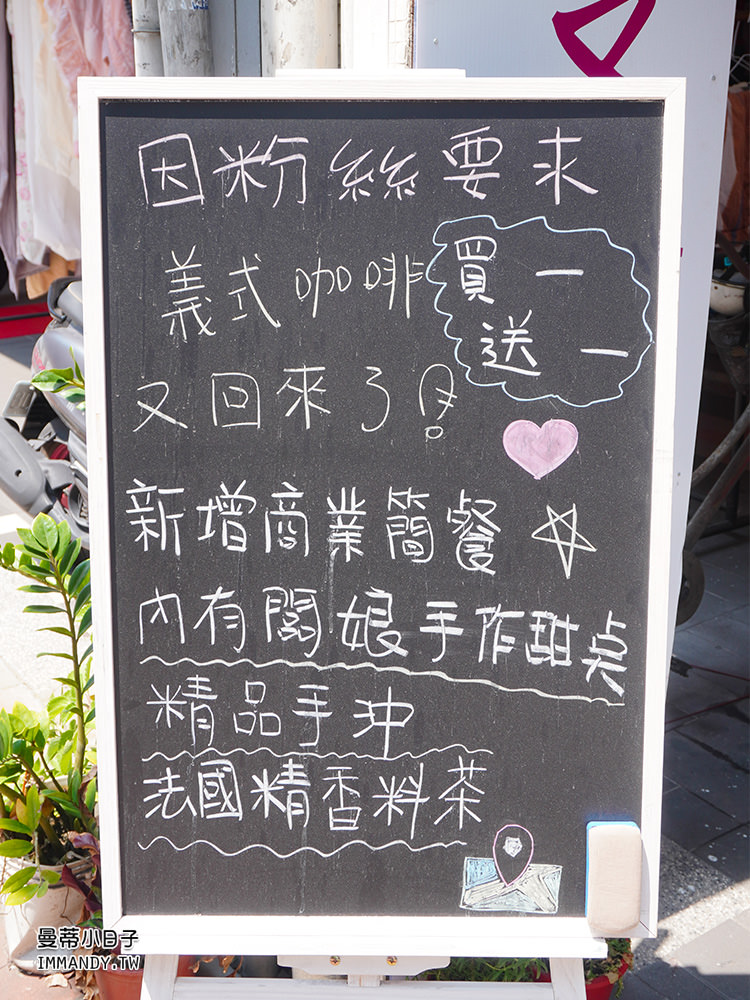 因粉絲要求
義式咖啡
買一
送一
又回來了!
新增商業簡餐
內有闆娘手作甜点
精品手沖
法國精香料茶
曼蒂小日子
IMMANDY.TW